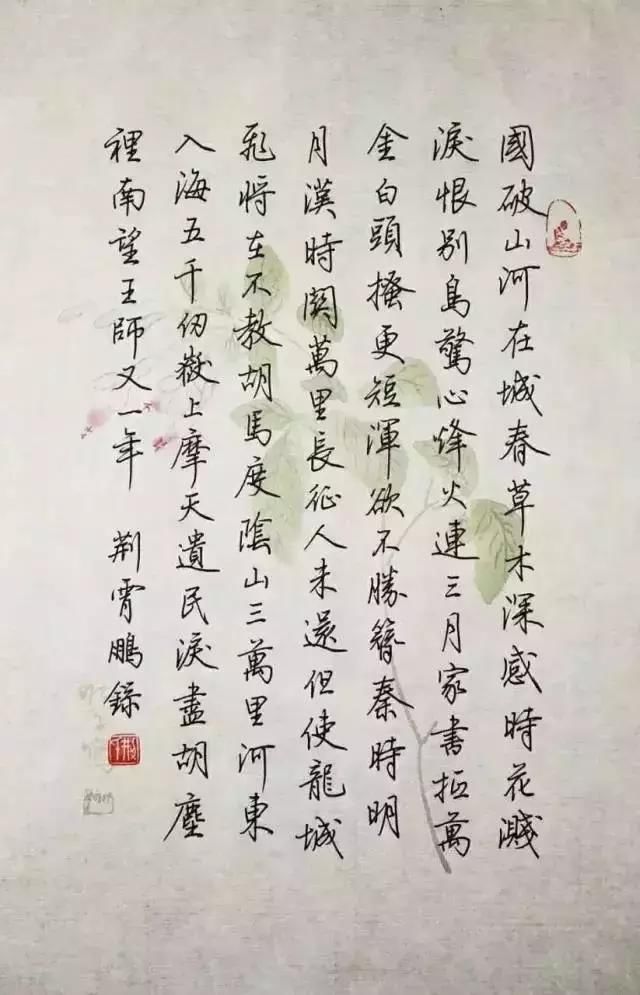 國破山河在城春草木深感時花濺
淚恨別鳥驚心烽火連三月家書抵萬
金白頭搔更短渾欲不勝簪秦時明
月漢時關萬里長征人未還但使龍城
飛將在不教胡馬度陰山三萬里河東
入海五千仞嶽上摩天遺民淚盡胡塵
裡南望王師又一年 荊霄鵬錄